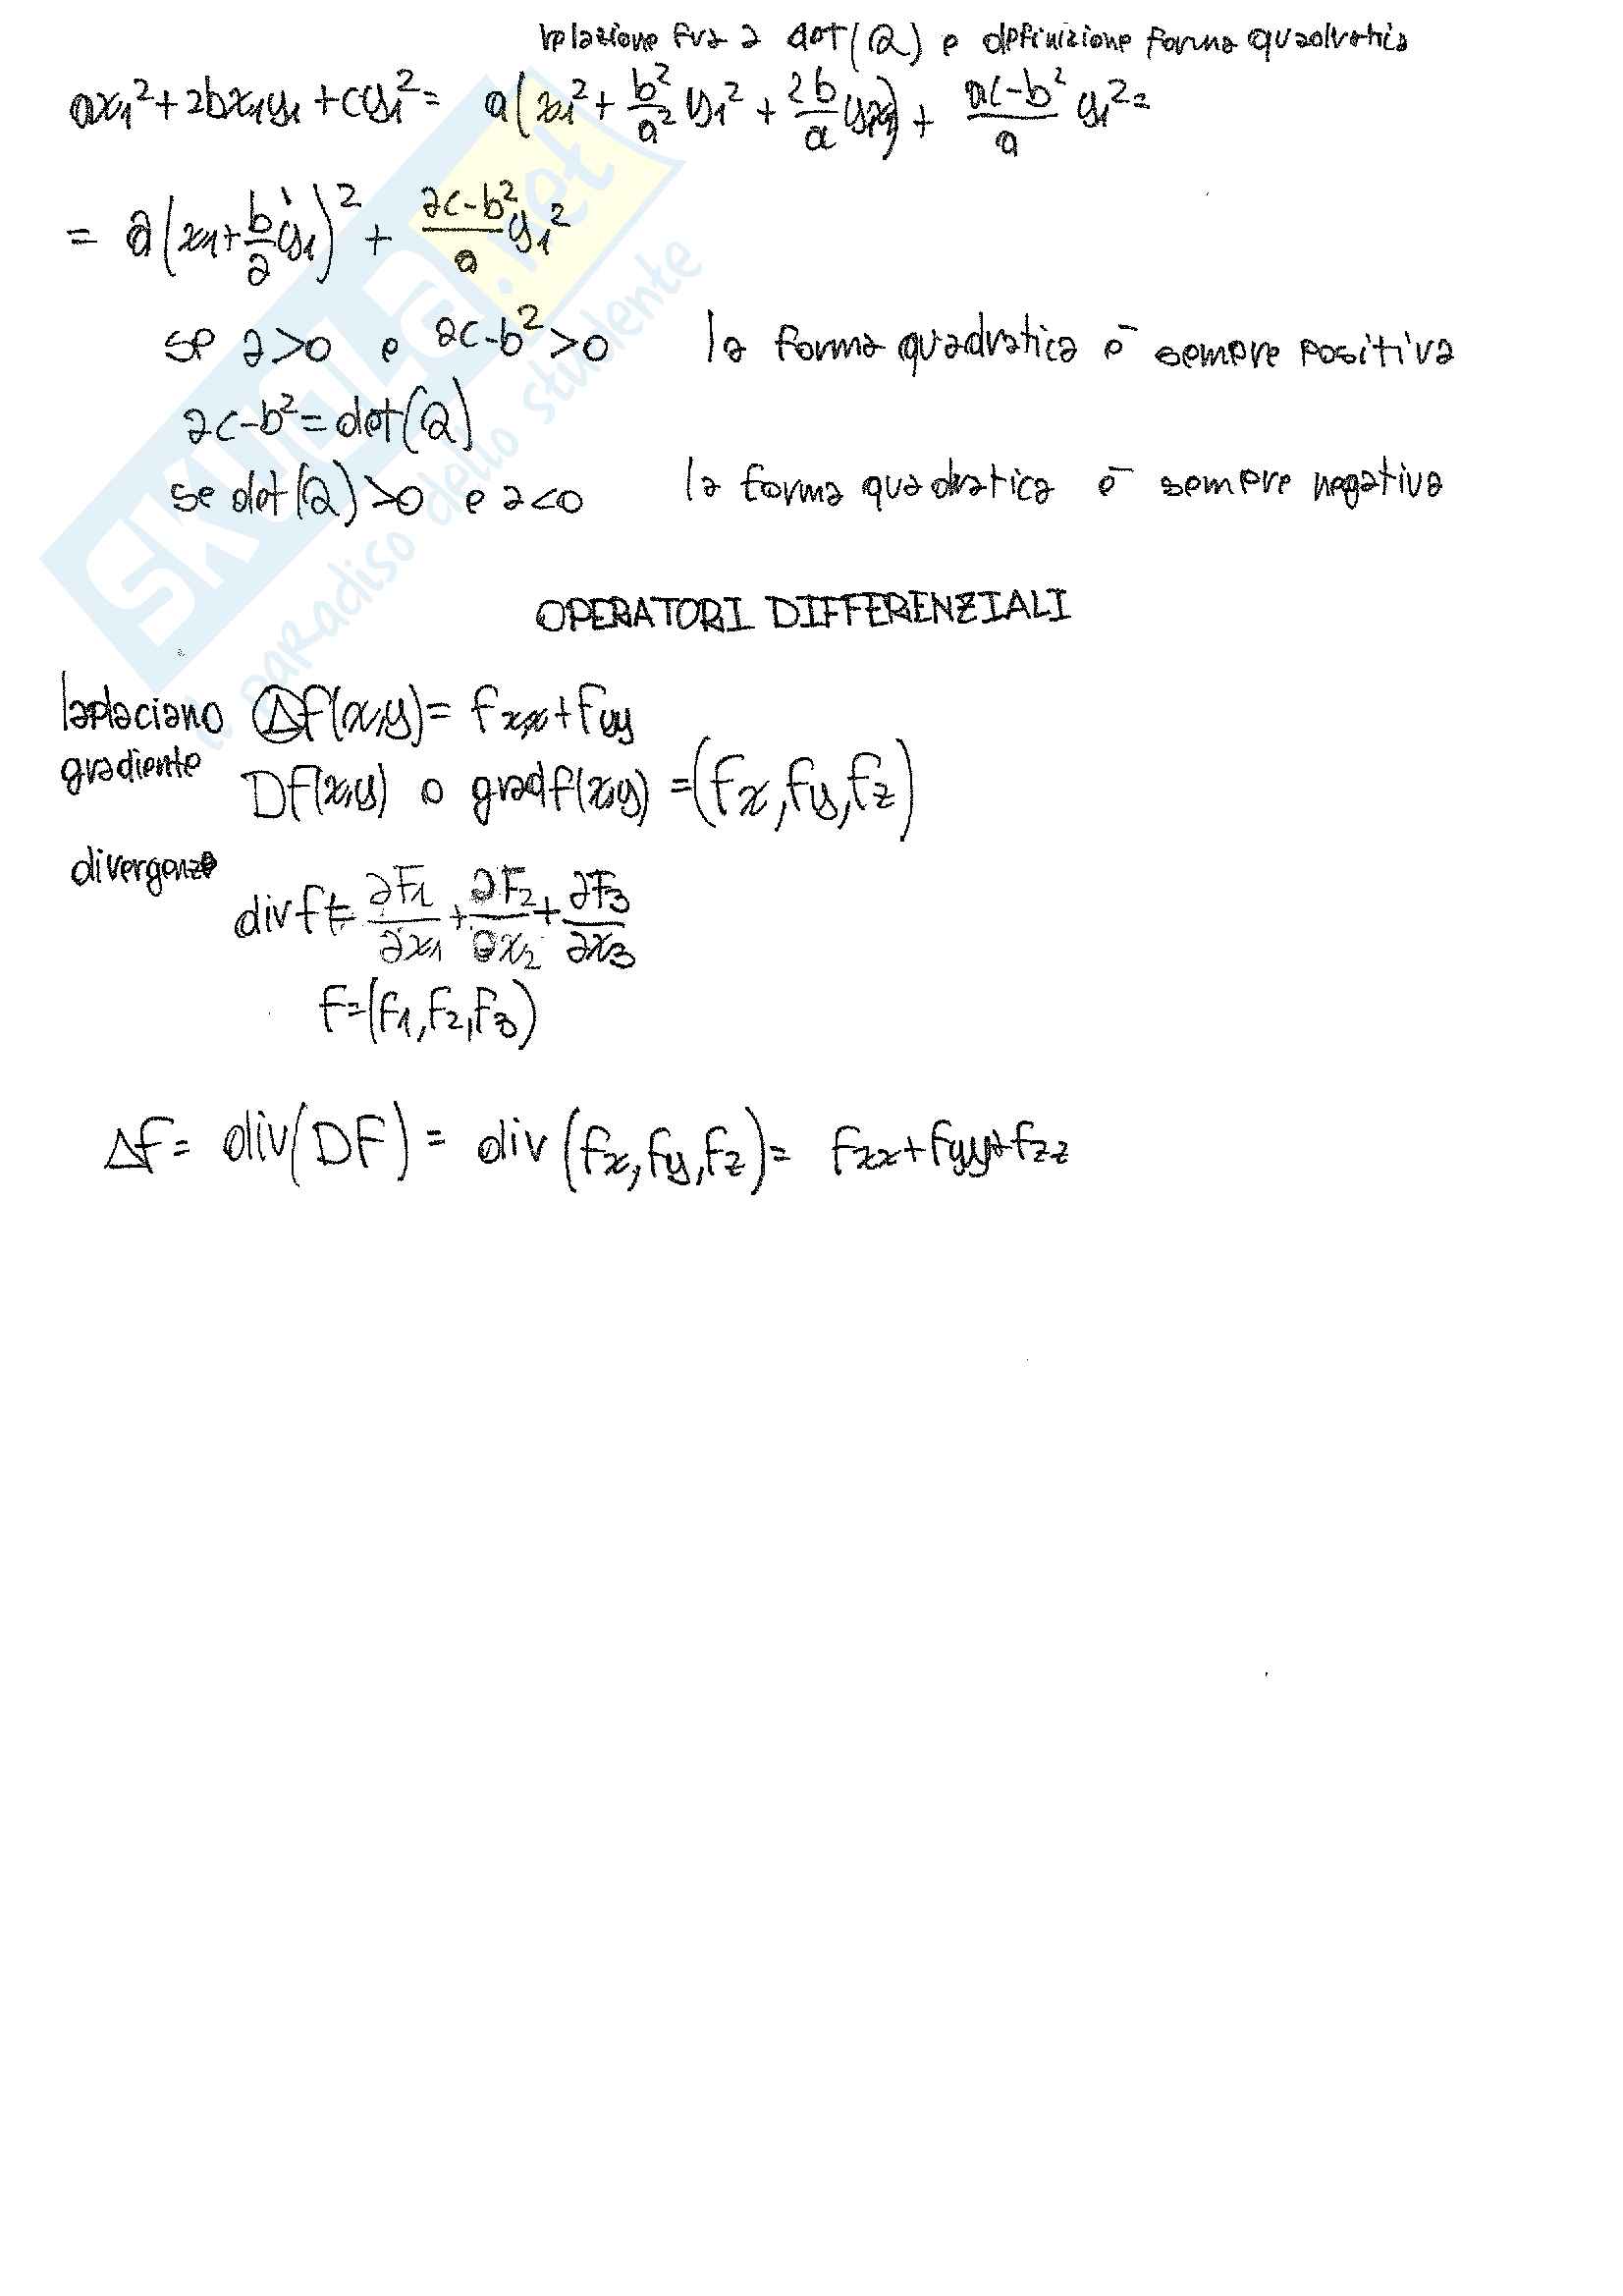 relazione fra a det(Q) e definizione forma quadratica
ax₁²+2bx₁y₁+cy₁²= a(x₁²+b²/a² y₁²+2b/a y₁x₁)+ (ac-b²)/a y₁²=
= a(x₁+b/a y₁)²+ (ac-b²)/a y₁²
se a>0 e ac-b²>0 la forma quadratica è sempre positiva
ac-b²=det(Q)
se det(Q)>0 e a<0 la forma quadratica è sempre negativa
OPERATORI DIFFERENZIALI
laplaciano Δf(x,y)= fxx+fyy
gradiente Df(x,y) o gradf(x,y) =(fx,fy,fz)
divergenza
div f = ∂F₁/∂x₁+∂F₂/∂x₂+∂F₃/∂x₃
F=(F₁,F₂,F₃)
Δf= div(DF)= div(fx,fy,fz)= fxx+fyy+fzz
SKUOLA.net
il paradiso dello studente